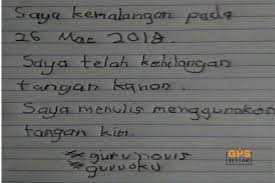 Saya kemalangan pada
26 Mac 2018.
Saya telah kehilangan
tangan kanan.
Saya menulis menggunakan
tangan kiri.
#gurunovis
#guruoku
GPS
BESTARI